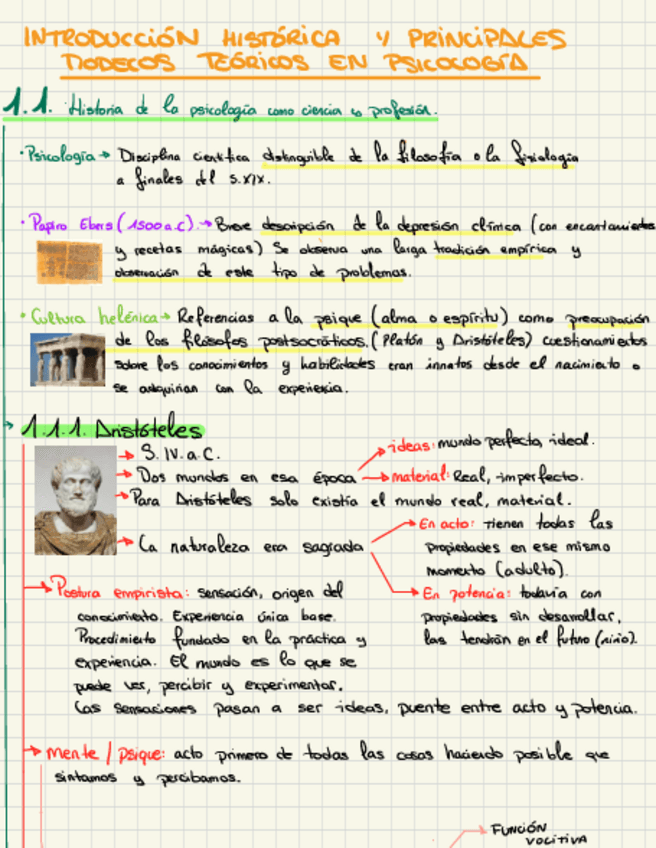 INTRODUCCIÓN HISTÓRICA Y PRINCIPALES
MODELOS TEÓRICOS EN PSICOLOGÍA
1.1. Historia de la psicología como ciencia y profesión.
· Psicología → Disciplina científica distinguible de la filosofía o la fisiología
a finales del S.XIX.
· Papiro Ebers (1500 a.C) → Breve descripción de la depresión clínica (con encantamientos
y recetas mágicas) Se observa una larga tradición empírica y
observación de este tipo de problemas.
· Cultura helénica → Referencias a la psique (alma o espíritu) como preocupación
de los filósofos postsocráticos. (Platón y Aristóteles) cuestionamientos
sobre los conocimientos y habilidades eran innatos desde el nacimiento o
se adquirían con la experiencia.
1.1.1. Aristóteles
→ S. IV. a. C.
→ Dos mundos en esa época
→ ideas: mundo perfecto, ideal.
→ material: Real, imperfecto.
→ Para Aristóteles solo existía el mundo real, material.
→ La naturaleza era sagrada
→ En acto: tienen todas las
propiedades en ese mismo
momento (adulto).
→ En potencia: todavía con
propiedades sin desarrollar,
las tendrán en el futuro (niño).
→ Postura empirista: sensación, origen del
conocimiento. Experiencia única base.
Procedimiento fundado en la práctica y
experiencia. El mundo es lo que se
puede ver, percibir y experimentar.
Las sensaciones pasan a ser ideas, puente entre acto y potencia.
→ Mente / Psique: acto primero de todas las cosas haciendo posible que
sintamos y percibamos.
→ FUNCIÓN
VOLITIVA